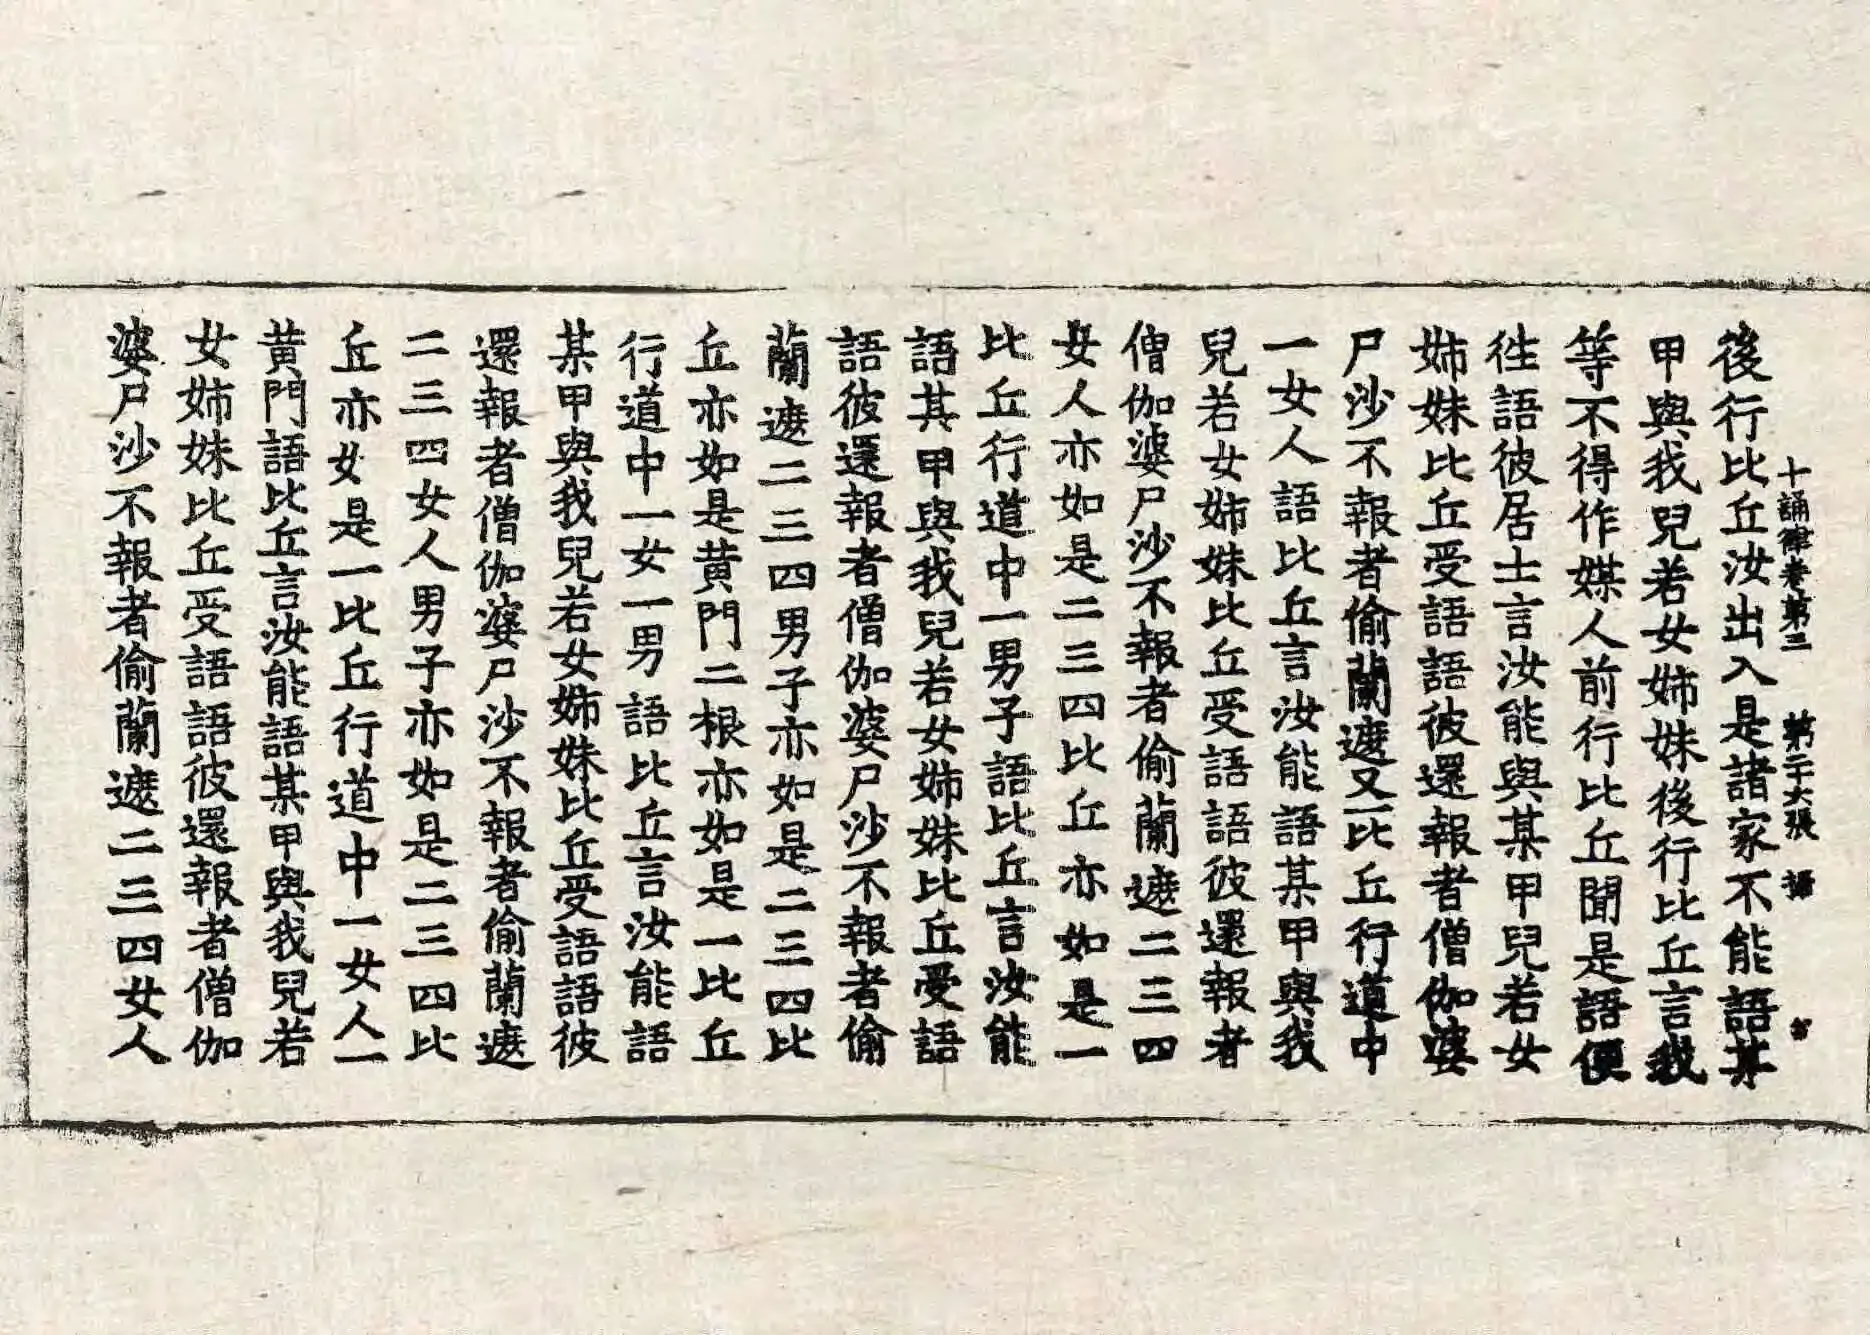 十誦律卷第三 第二十六張 攝
後行比丘汝出入是諸家不能語某
甲與我兒若女姊妹後行比丘言我
等不得作媒人前行比丘聞是語便
徃語彼居士言汝能與某甲兒若女
姊妹比丘受語語彼還報者僧伽婆
尸沙不報者偷蘭遮又一比丘行道中
一女人語比丘言汝能語某甲與我
兒若女姊妹比丘受語語彼還報者
僧伽婆尸沙不報者偷蘭遮二三四
女人亦如是二三四比丘亦如是一
比丘行道中一男子語比丘言汝能
語其甲與我兒若女姊妹比丘受語
語彼還報者僧伽婆尸沙不報者偷
蘭遮二三四男子亦如是二三四比
丘亦如是黃門二根亦如是一比丘
行道中一女一男語比丘言汝能語
某甲與我兒若女姊妹比丘受語語彼
還報者僧伽婆尸沙不報者偷蘭遮
二三四女人男子亦如是二三四比
丘亦如是一比丘行道中一女人一
黃門語比丘言汝能語某甲與我兒若
女姊妹比丘受語語彼還報者僧伽
婆尸沙不報者偷蘭遮二三四女人